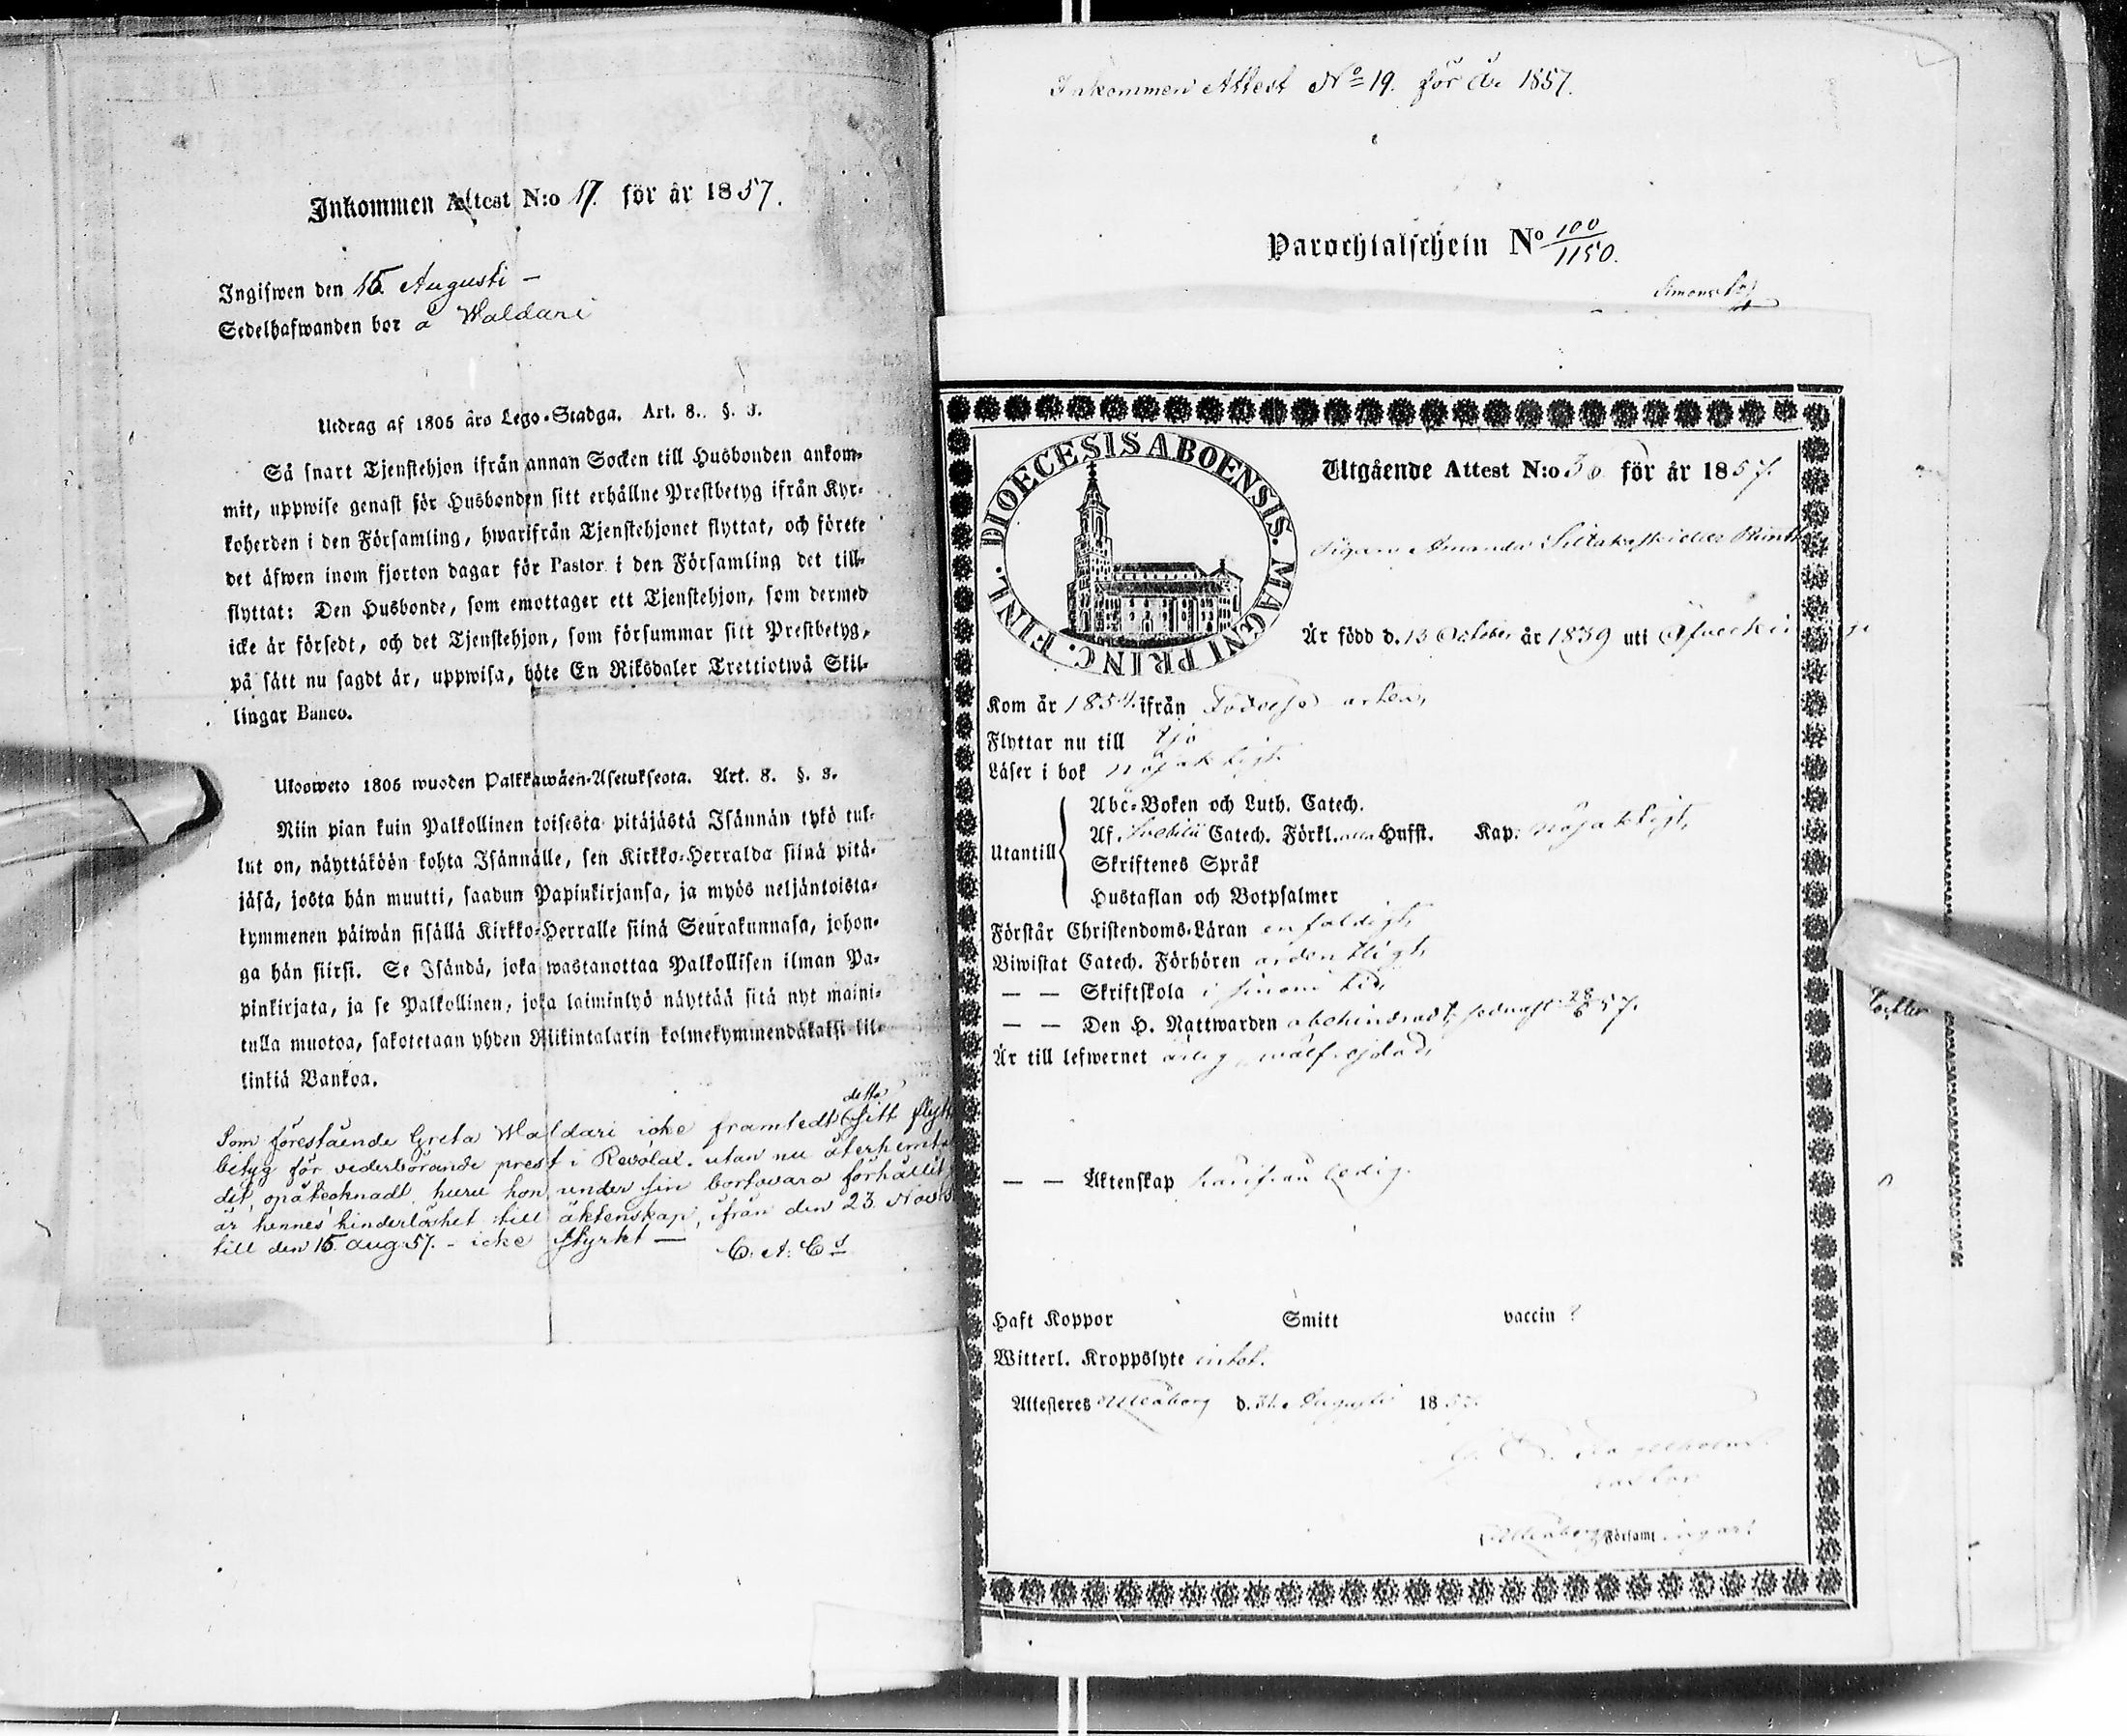 Inkommen Attest N:o 17. för år 1857.
Ingifwen den 15. Augusti –
Sedelhafwanden bor å Waldari
Utdrag af 1805 års Lego-Stadga. Art. 8. §. 3.
Så snart Tjenstehjon ifrån annan Socken till Husbonden ankom-
mit, uppwise genast för Husbonden sitt erhållne Prestbetyg ifrån Kyr-
koherden i den Församling, hwarifrån Tjenstehjonet flyttat, och förete
det äfwen inom fjorton dagar för Pastor i den Församling det till-
flyttat: Den Husbonde, som emottager ett Tjenstehjon, som dermed
icke är försedt, och det Tjenstehjon, som försummar sitt Prestbetyg,
på sätt nu sagdt är, uppwisa, böte En Riksdaler Trettiotwå Skil-
lingar Banco.
Ulosweto 1805 wuoden Palkkawäen-Asetuksesta. Art. 8. §. 3.
Niin pian kuin Palkollinen toisesta pitäjästä Isännän tykö tul-
lut on, näyttäköön kohta Isännälle, sen Kirkko-Herralda siinä pitä-
jäsä, josta hän muutti, saadun Papinkirjansa, ja myös neljäntoista-
kymmenen päiwän sisällä Kirkko-Herralle siinä Seurakunnasa, johon-
ga hän siirsi. Se Isändä, joka wastanottaa Palkollisen ilman Pa-
pinkirjata, ja se Palkollinen, joka laiminlyö näyttää sitä nyt maini-
tulla muotoa, sakotetaan yhden Riikintalarin kolmekymmendäkaksi kil-
linkiä Bankoa.
detta
Som förestående Greta Waldari icke framtedt sitt flytt
betyg för vederbörande prest i Revolax. utan nu återhemtat
det opåtecknadt, huru hon under sin bortovaro förhållit
är hennes hinderlöshet till äktenskap, ifrån den 23. Nov
till den 15 aug 57. – icke styrkt —
C. A. C
Inkommen Attest No 19. för år 1857.
Parochialschein No 100/1150.
Utgående Attest N:o 30 för år 1857.
Pigan Amanda
Är född d. 13 October år 1839 uti
Kom år 1854 ifrån
Flyttar nu till Ijo
Läser i bok nöjaktigt
Abc-Boken och Luth. Catech.
Af Svebilii Catech. Förkl. alla Hufst. Kap: nöjaktigt,
Utantill
Skriftenes Språk
Hustaflan och Botpsalmer
Förstår Christendoms-Läran enfaldigt,
Biwistat Catech. Förhören ordentligt,
— — Skriftskola i sinom tid,
— — Den H. Nattwarden obehindradt, sednast 28/6 57.
Är till lefwernet ärlig, wälfrejdad,
— — Äktenskap härifrån ledig.
Haft Koppor Smitt vaccin ?
Witterl. Kroppslyte intet.
Attesteres Uleåborg d. 31 Augusti 1857.
Pastor
Uleåborgs Församlingar.
DIOECESIS ABOENSIS. MAGNI PRINC. FINL.